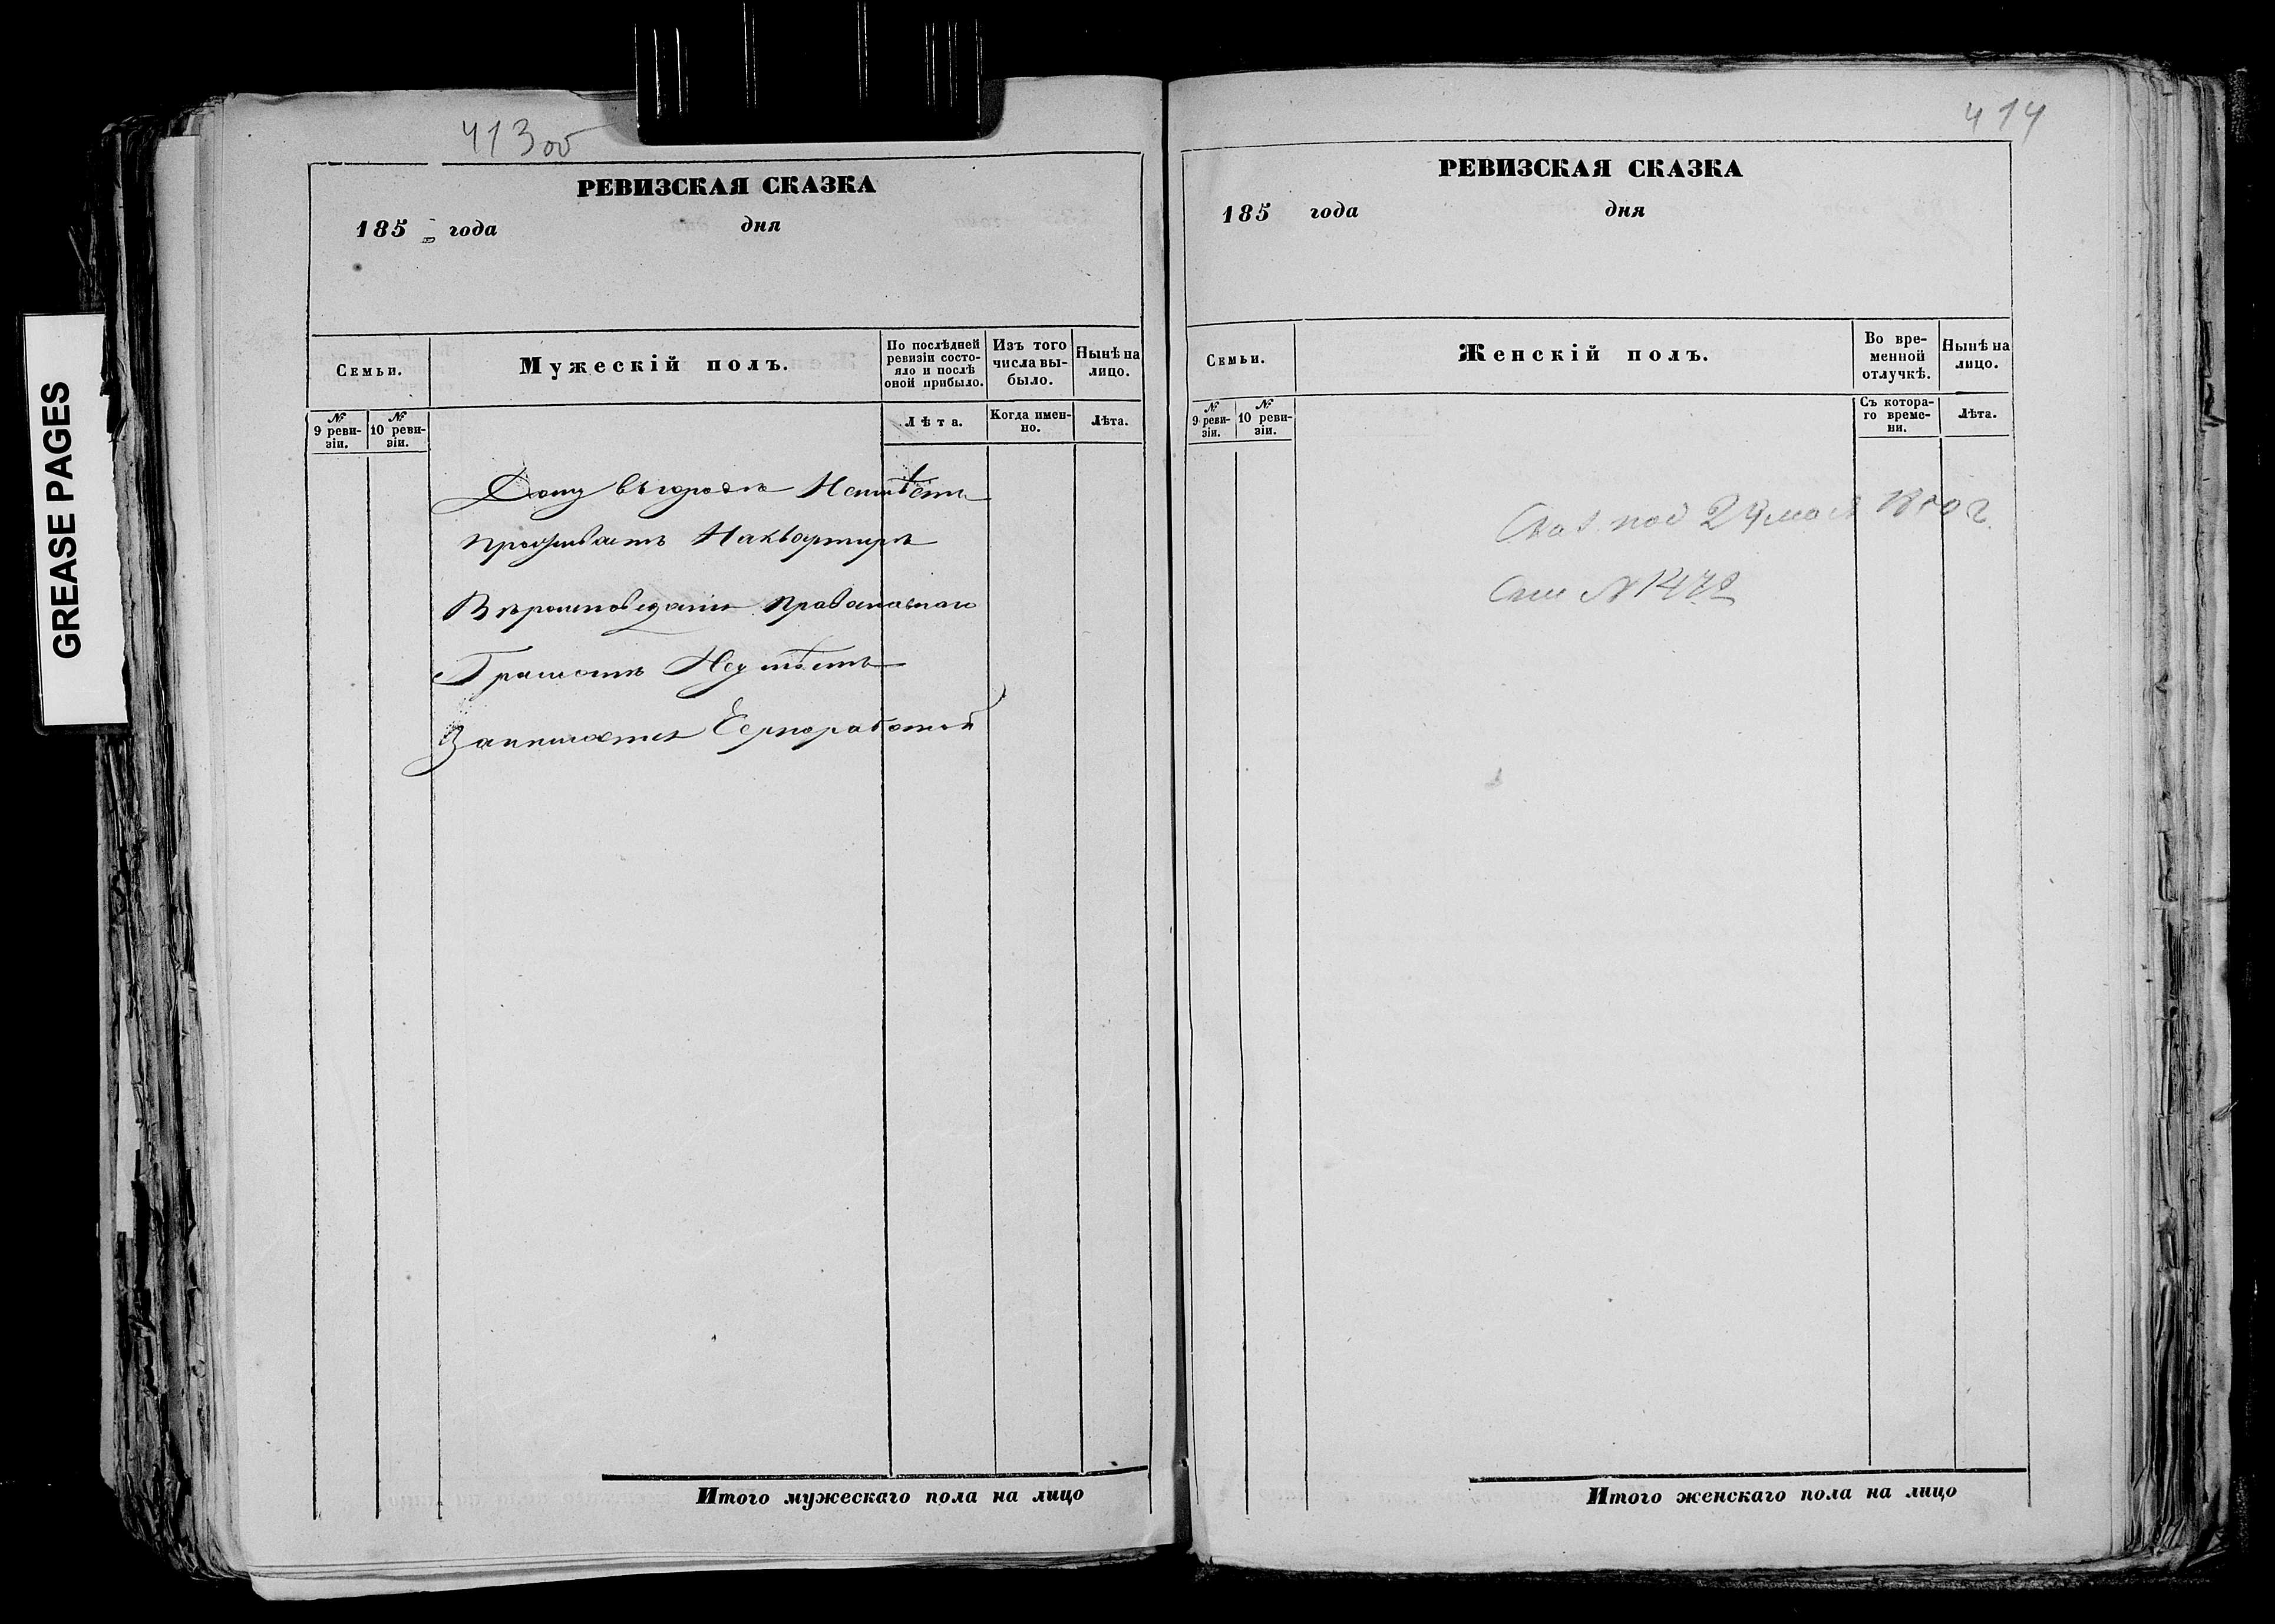 GREASE PAGES
413 об
РЕВИЗСКАЯ СКАЗКА
185 года дня
Семьи.
Мужескій полъ.
По послѣдней ревизіи состояло и послѣ оной прибыло.
Изъ того числа выбыло.
Нынѣ на лицо.
№ 9 ревизіи.
№ 10 ревизіи.
Лѣта.
Когда именно.
Лѣта.
Дому въ городѣ Неимѣетъ
проживаетъ Наквартирѣ
Вѣроисповеданія православнаго
Грамотѣ Неумѣетъ
Занимается Чернорабочей
Итого мужескаго пола на лицо
414
РЕВИЗСКАЯ СКАЗКА
185 года дня
Семьи.
Женскій полъ.
Во временной отлучкѣ.
Нынѣ на лицо.
№ 9 ревизіи.
№ 10 ревизіи.
Съ котораго времени.
Лѣта.
под 24 мая г.
№ 1472
Итого женскаго пола на лицо